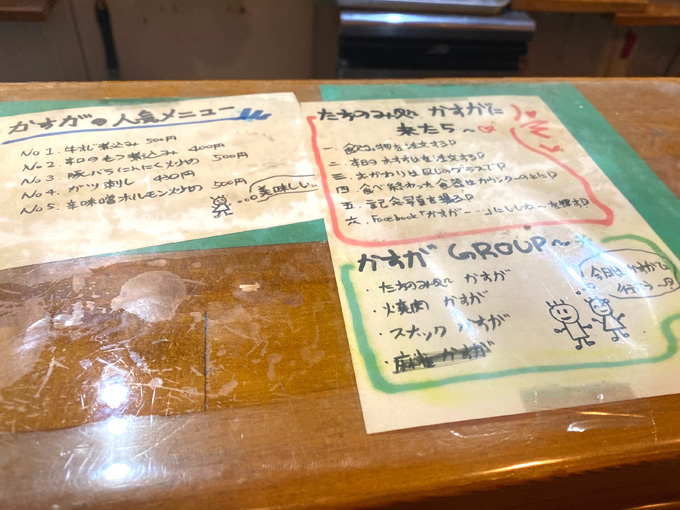 かすがの人気メニュー
No1. 牛すじ煮込み 500円
No2. 本日のもつ煮込み 400円
No3. 豚バラにんにく炒め 500円
No4. ガツ刺し 430円
No5. 辛味噌ホルモン炒め 500円
美味しい。
たちのみ処 かすがに
来たら〜
一、食べ物を注文するP
二、本日のおすすめを注文するP
三、おかわりは同じのグラスでP
四、食べ終わった食器はカウンターの上にP
五、記念写真を撮るP
六、Facebook「かすがー…」にいいね〜を押すP
かすが GROUP〜
・たちのみ処 かすが
・焼肉 かすが
・スナック かすが
・麻雀 かすが
今日は かすがに
行こう〜P